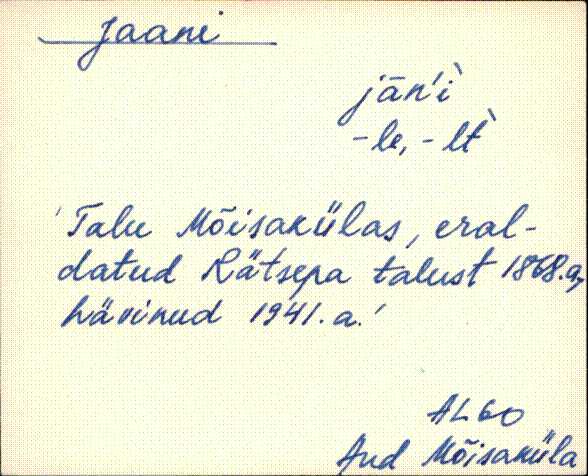 Jaani
jān'i`
-le, -lt`
'Talu Mõisakülas, eral-
datud Rätsepa talust 1868.a,
hävinud 1941. a.'
AL 60
Aud Mõisaküla